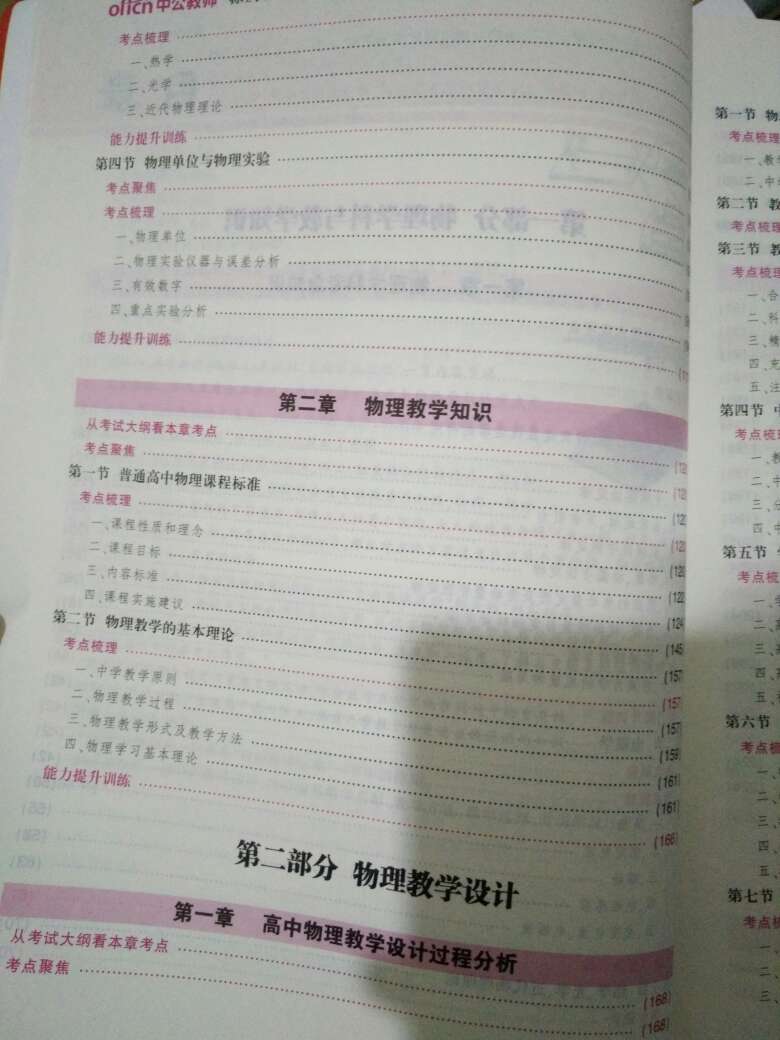 offcn 中公教师
考点梳理
一、热学
二、光学
三、近代物理理论
能力提升训练
第四节 物理单位与物理实验
考点聚焦
考点梳理
一、物理单位
二、物理实验仪器与误差分析
三、有效数字
四、重点实验分析
能力提升训练
第二章 物理教学知识
从考试大纲看本章考点
考点聚焦
第一节 普通高中物理课程标准
考点梳理
一、课程性质和理念
二、课程目标
三、内容标准
四、课程实施建议
第二节 物理教学的基本理论
考点梳理
一、中学教学原则
二、物理教学过程
三、物理教学形式及教学方法
四、物理学习基本理论
能力提升训练
(124
(145
(157
(157
(157)
(159)
(161)
(161)
(166)
第二部分 物理教学设计
第一章 高中物理教学设计过程分析
从考试大纲看本章考点 (168)
考点聚焦 (168)
第一节 物
考点梳理
一、教
二、中
第二节 教
考点梳理
第三节 教
考点梳理
一、合
二、科
三、
四、充
五、注
第四节 中
考点梳
一、教
二、中
三、
四、中
第五节
考点梳
一、
二、
三、
四、
五、
第六节
考点梳
一、
二、
三、
四、
五、
第七节
考点
一、
二、
三、